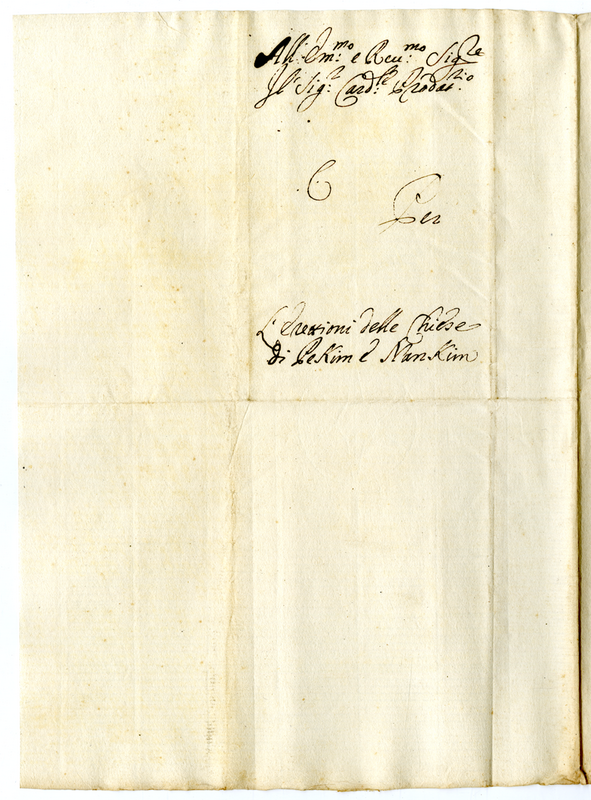 All: Em:mo e Reu:mo Sig:re
Il Sig:r Card:le Prodat:rio
C
Per
L'Erezzioni delle Chiese
di PeKim e NanKim